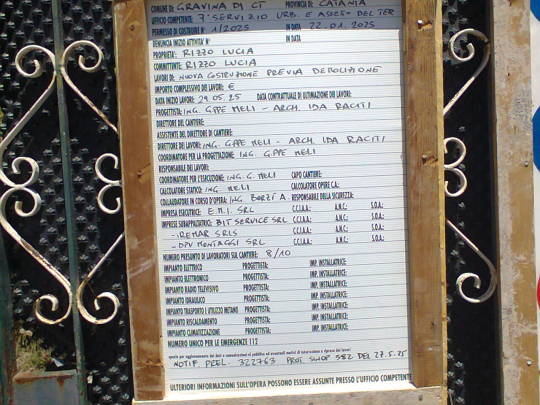 COMUNE DI GRAVINA DI CT PROVINCIA DI CATANIA
UFFICIO COMPETENTE: 7° SERVIZIO URB. E ASSETTO DEL TER
PERMESSO DI COSTRUIRE N° 1/2025 IN DATA 22.01.2025
DENUNCIA INIZIO ATTIVITA' N° IN DATA
PROPRIETA': RIZZO LUCIA
COMMITTENTE: RIZZO LUCIA
LAVORI DI: NUOVA COSTRUZIONE PREVIA DEMOLIZIONE
IMPORTO COMPLESSIVO DEI LAVORI: €
DATA INIZIO LAVORI: 29.05.25 DATA CONTRATTUALE DI ULTIMAZIONE DEI LAVORI:
PROGETTISTA: ING. G.PPE MELI - ARCH. IDA RACITI
DIRETTORE DEL CANTIERE:
ASSISTENTE DEL DIRETTORE DI CANTIERE:
DIRETTORE DEI LAVORI: ING. G.PPE MELI - ARCH. IDA RACITI
COORDINATORE PER LA PROGETTAZIONE: ING. G.PPE MELI
RESPONSABILE DEI LAVORI:
COORDINATORE PER L'ESECUZIONE: ING. G. MELI CAPO CANTIERE:
CALCOLATORE STATICO: ING. MELI CALCOLATORE OPERE CA.:
COLLAUDATORE IN CORSO D'OPERA: ING. BORZI A. RESPONSABILE DELLA SICUREZZA:
IMPRESA ESECUTRICE: E.M.I. SRL C.C.I.A.A.: A.N.C.: S.O.A.:
IMPRESE SUBAPPALTATRICI: BIT SERVICE SRL C.C.I.A.A.: A.N.C.: S.O.A.:
- REMAR SRLS C.C.I.A.A.: A.N.C.: S.O.A.:
- MONTAGGI SRL C.C.I.A.A.: A.N.C.: S.O.A.:
NUMERO PRESUNTO DI LAVORATORI SUL CANTIERE: 8/10
IMPIANTO ELETTRICO PROGETTISTA: IMP. INSTALLATRICE:
IMPIANTO ELETTRONICO PROGETTISTA: IMP. INSTALLATRICE:
IMPIANTO RADIO TELEVISIVO PROGETTISTA: IMP. INSTALLATRICE:
IMPIANTO IDRAULICO PROGETTISTA: IMP. INSTALLATRICE:
IMPIANTO TRASPORTO E UTILIZZO METANO PROGETTISTA: IMP. INSTALLATRICE:
IMPIANTO RISCALDAMENTO PROGETTISTA: IMP. INSTALLATRICE:
IMPIANTO CLIMATIZZAZIONE PROGETTISTA: IMP. INSTALLATRICE:
NUMERO UNICO PER LE EMERGENZE 112
NOTIF. PREL. 322763 PROT. 582 DEL 27.5.25
ULTERIORI INFORMAZIONI SULL'OPERA POSSONO ESSERE ASSUNTE PRESSO L'UFFICIO COMPETENTE